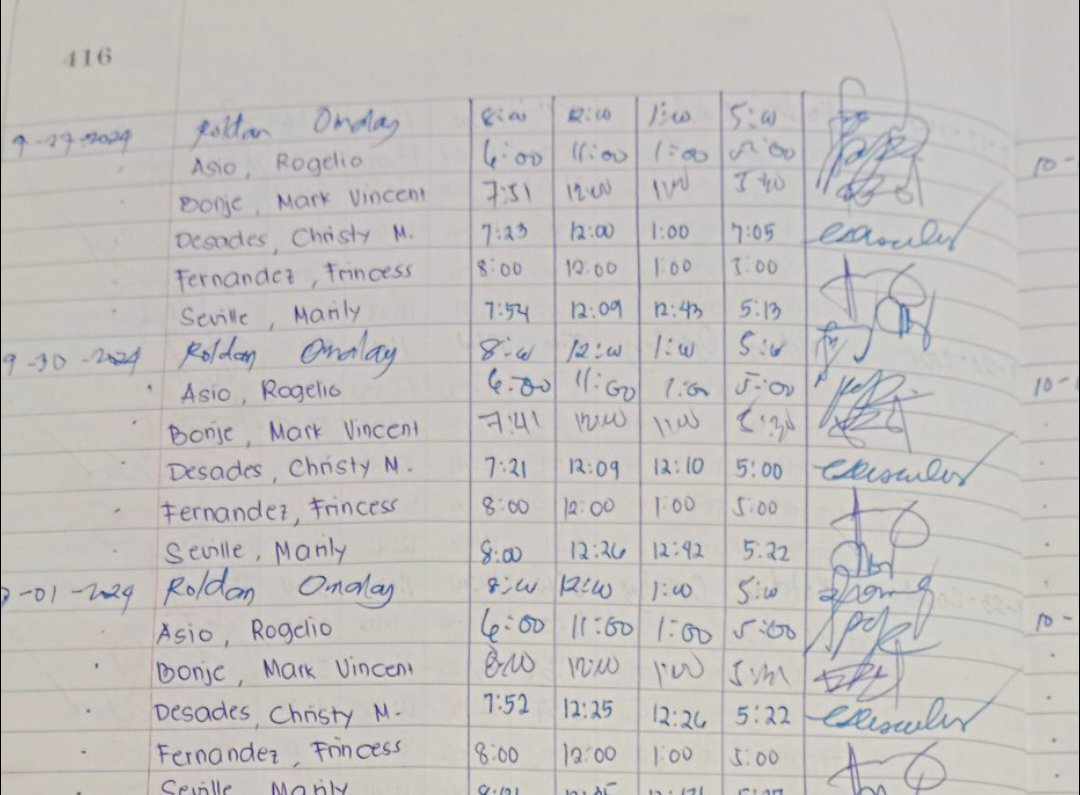 416
9-27-2024 Roldan Onalay 8:00 12:00 1:00 5:00
Asio, Rogelio 6:00 11:00 1:00 5:00
Bonje, Mark Vincent 7:51 12:00 1:00
Desades, Christy M. 7:23 12:00 1:00 7:05
Fernandez, Frincess 8:00 12:00 1:00 5:00
Seville, Marily 7:54 12:09 12:43 5:13
9-30-2024 Roldan Onalay 8:00 12:00 1:00 5:00
Asio, Rogelio 6:00 11:00 1:00 5:00 10-
Bonje, Mark Vincent 7:41 12:00 1:00 5:30
Desades, Christy M. 7:21 12:09 12:10 5:00
Fernandez, Frincess 8:00 12:00 1:00 5:00
Seville, Marily 8:00 12:26 12:42 5:22
-01-2024 Roldan Onalay 8:00 12:00 1:00 5:00
Asio, Rogelio 6:00 11:00 1:00 5:00 10-
Bonje, Mark Vincent 8:00 12:00 1:00
Desades, Christy M. 7:52 12:25 12:26 5:22
Fernandez, Frincess 8:00 12:00 1:00 5:00
Seville Marily